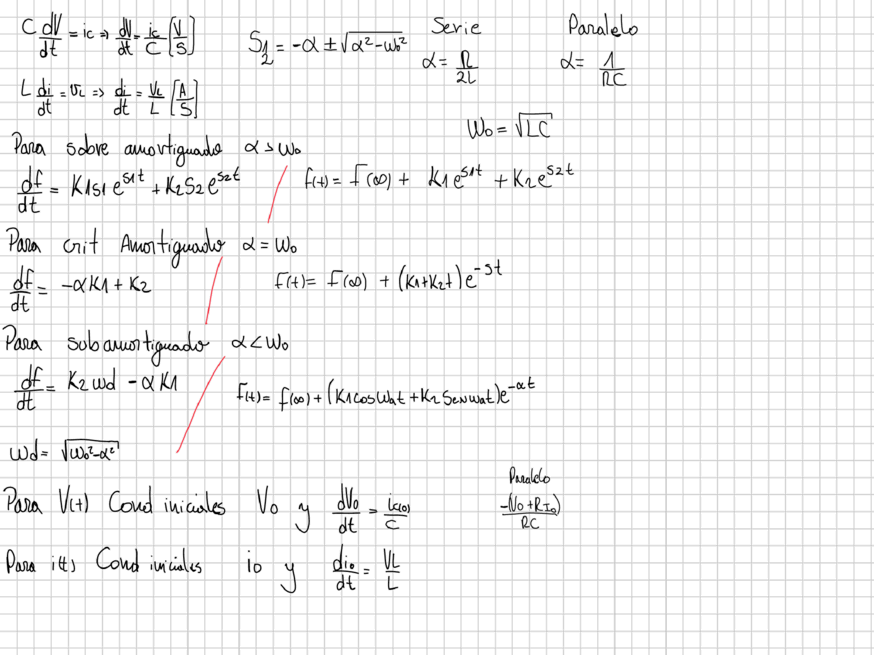 C dV/dt = ic ⇒ dV/dt = ic/C [V/S]
S1/2 = -α ± √(α² - ω₀²)
Serie
α = R/2L
Paralelo
α = 1/RC
L di/dt = VL ⇒ di/dt = VL/L [A/S]
W₀ = √LC
Para sobre amortiguado α > W₀
df/dt = K1S1 e^S1t + K2S2 e^S2t
f(t) = F(∞) + K1 e^S1t + K2 e^S2t
Para crit Amortiguado α = W₀
df/dt = -αK1 + K2
F(t) = F(∞) + (K1+K2t) e^-St
Para subamortiguado α < W₀
df/dt = K2 ωd - αK1
F(t) = f(∞) + (K1 cos Wdt + K2 Sen wdt) e^-αt
Wd = √(W₀² - α²)
Para V(t) Cond iniciales V₀ y dV₀/dt = ic(0)/C
Paralelo
-(V₀ + RI₀)/RC
Para i(t) Cond iniciales i₀ y di₀/dt = VL/L